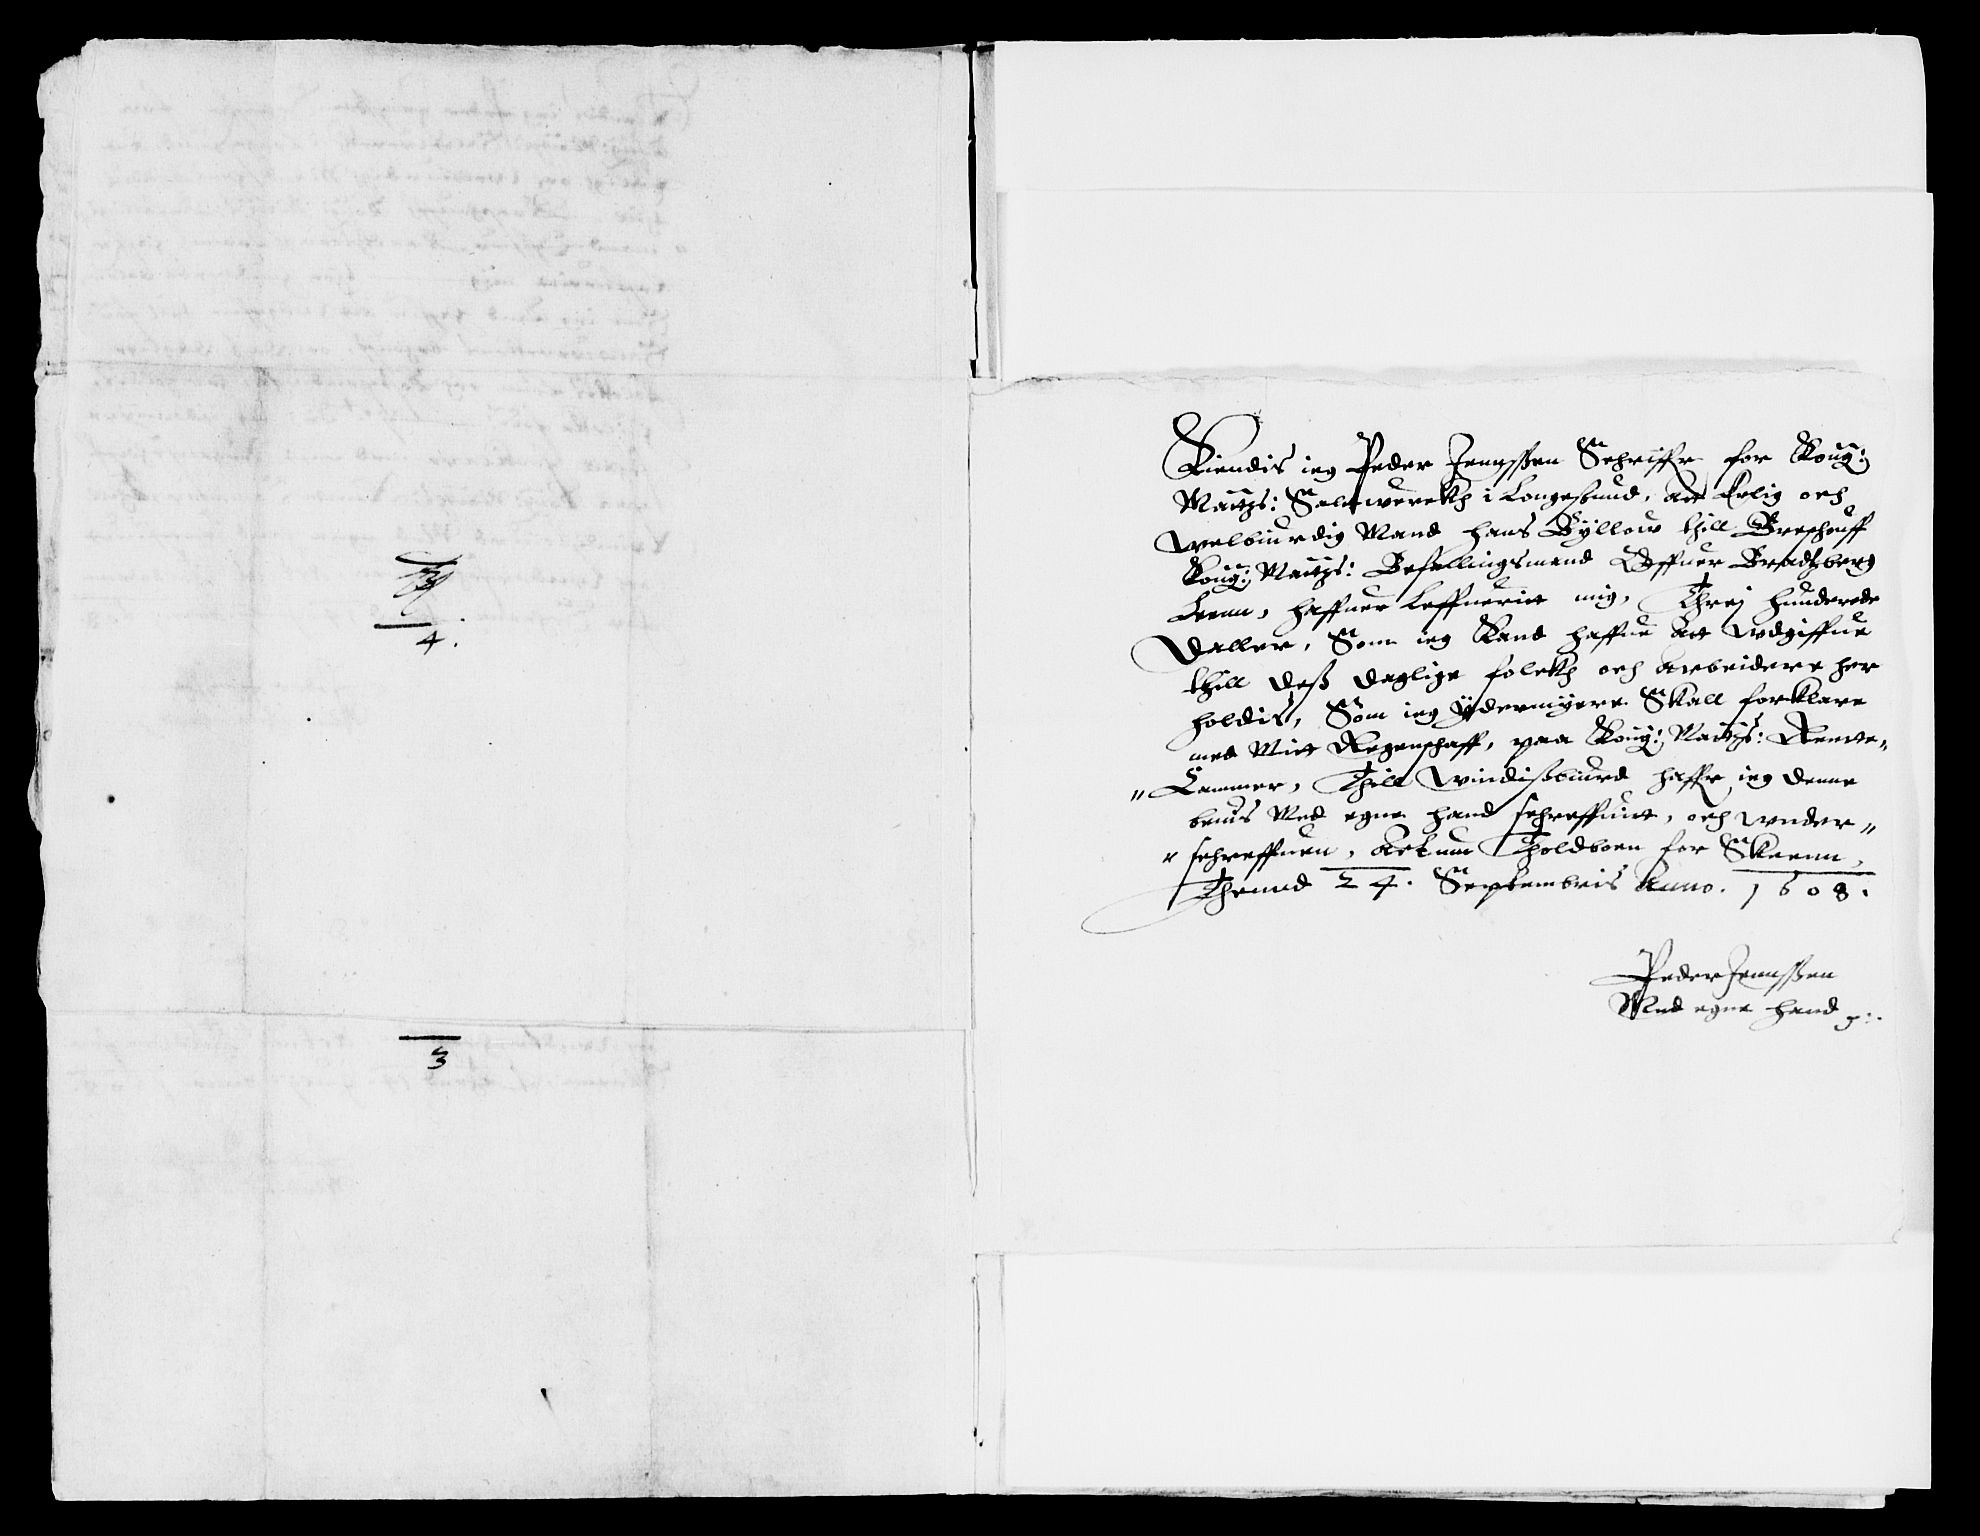 4.
3
Kiendis ieg Peder Jennssen Schriffr for Kong:
Maitzs: Saltwerckh i Longesund, Att Erlig och
welbiurdig Mand Hans Byllow thill
Kong: Maitzs: Befallingsmand Offuer Bradtzberg
Leenn, haffuer Leffuerit mig, Threj hunderede
Daller, Som ieg Kand haffue Att wdgiffue
thill deß daglige folckh och Arbeidere her
holdis, Som ieg Ydermyere Skall forklare
med Mitt Regenschaff, paa Kong: Maitzs: Rentte„
„Cammer, Thill windisbiurd haffr ieg denne
beuis Med egne hand schreffuit, och wnder„
schreffuen, Actum Tholdboen for Skeenn,
Thennd 24. Septembris Anno. 1608.
Peder Jennssen
Med egne hand